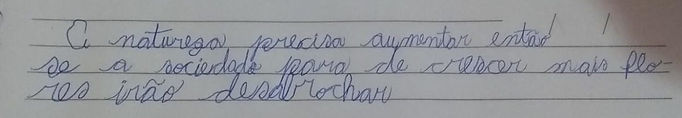 A natureza precisa aumentar então
se a sociedade para de crescer mais flo-
res irão desabrochar